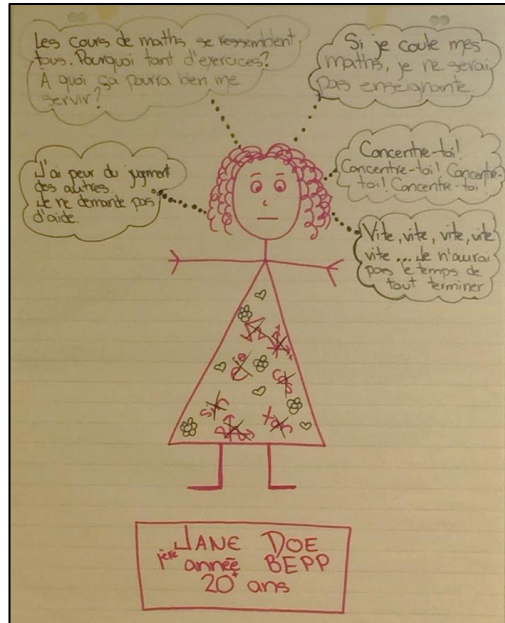 Les cours de maths se ressemblent
tous. Pourquoi tant d'exercices?
À quoi ça pourra bien me
servir?
Si je coule mes
maths, je ne serai
pas enseignante
J'ai peur du jugment
des autres.
Je ne demande pas
d'aide.
Concentre-toi!
Concentre-toi! Concentre-
toi! Concentre-toi
Vite, vite, vite, vite
vite... Je n'aurai
pas le temps de
tout terminer
cos
sin
tan
JANE DOE
1ère année BEPP
20+ ans